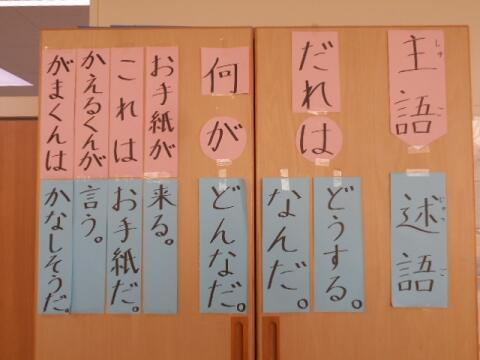 主語
しゅご
述語
じゅつご
だれは
どうする。
なんだ。
何が
どんなだ。
お手紙が
来る。
これは
お手紙だ。
かえるくんが
言う。
がまくんは
かなしそうだ。